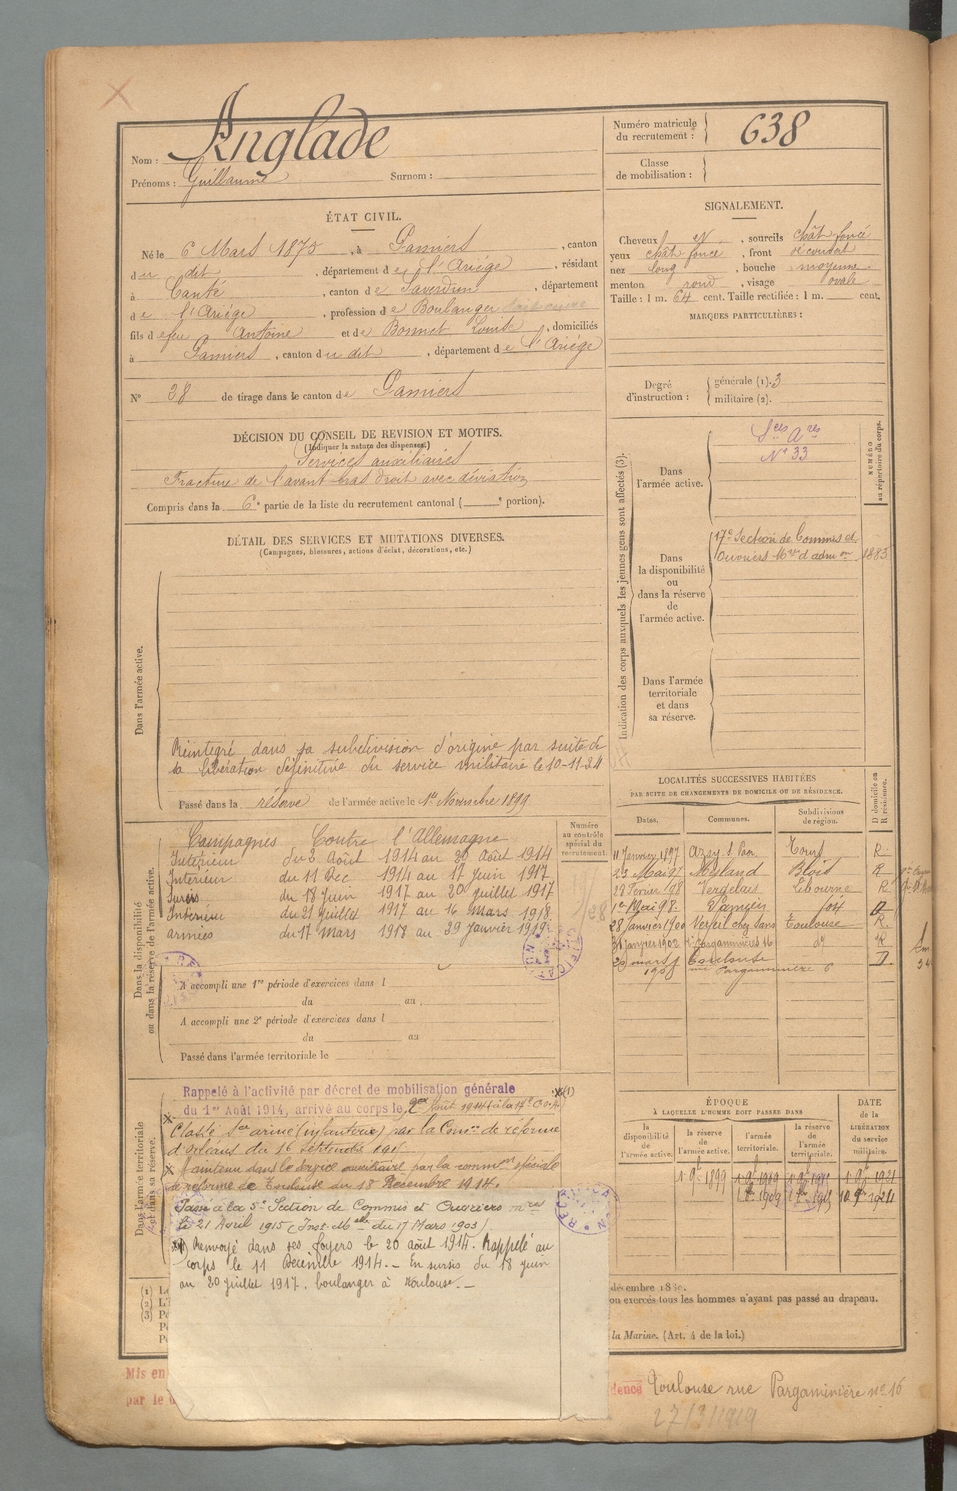 Nom : Anglade
Prénoms : Guillaume Surnom :
Numéro matricule du recrutement : 638
Classe de mobilisation :
ÉTAT CIVIL.
Né le 6 Mars 1875, à Pamiers, canton
du dit, département de l'Ariège, résidant
à Canté, canton de Saverdun, département
de l'Ariège, profession de Boulanger
fils de feu Antoine et de Bonnet Louise, domiciliés
à Pamiers, canton du dit, département de l'Ariège
N° 38 de tirage dans le canton de Pamiers
SIGNALEMENT.
Cheveux et, sourcils chât foncé
yeux chât foncé, front découvert
nez long, bouche moyenne
menton rond, visage ovale
Taille : 1 m. 64 cent. Taille rectifiée : 1 m. cent.
MARQUES PARTICULIÈRES :
Degré d'instruction : générale (1). 3
militaire (2).
DÉCISION DU CONSEIL DE REVISION ET MOTIFS.
(Indiquer la nature des dispenses.)
Services auxiliaires
Fracture de l'avant bras droit avec déviation
Compris dans la 6e partie de la liste du recrutement cantonal ( e portion).
DÉTAIL DES SERVICES ET MUTATIONS DIVERSES.
(Campagnes, blessures, actions d'éclat, décorations, etc.)
Dans l'armée active.
Réintégré dans sa subdivision d'origine par suite de
sa libération définitive du service militaire le 10-11-24
Passé dans la réserve de l'armée active le 1er Novembre 1899
Indication des corps auxquels les jeunes gens sont affectés (3).
NUMÉRO au répertoire du corps.
Dans l'armée active.
Ses Ares
N° 33
Dans la disponibilité ou dans la réserve de l'armée active.
17e Section de Commis et
Ouvriers Mres d'admon 1885
Dans l'armée territoriale et dans sa réserve.
Dans la disponibilité ou dans la réserve de l'armée active.
Numéro au contrôle spécial du recrutement.
Campagnes Contre l'Allemagne
Intérieur du 3 Août 1914 au 20 Août 1914
Intérieur du 11 Dec 1914 au 17 Juin 1917
Sursis du 18 Juin 1917 au 20 Juillet 1917
Intérieur du 21 Juillet 1917 au 16 Mars 1918
armées du 17 Mars 1918 au 29 Janvier 1919
A accompli une 1re période d'exercices dans l
du au
A accompli une 2e période d'exercices dans l
du au
Passé dans l'armée territoriale le
LOCALITÉS SUCCESSIVES HABITÉES
PAR SUITE DE CHANGEMENTS DE DOMICILE OU DE RÉSIDENCE.
Dates. Communes. Subdivisions de région. D domicile ou R résidence.
11 Janvier 1897 Azay-s- Tours R.
23 Mai 97 Mesland Blois R
22 Février 98 Libourne R
1er Mai 98 Pamiers D
28 Janvier 1900 Verfeil Toulouse R.
31 Janvier 1902 r. Pargaminières 16 do R
29 mars 1908 Toulouse rue Pargaminière 6 D
Dans l'armée territoriale et dans sa réserve.
Rappelé à l'activité par décret de mobilisation générale
du 1er Août 1914, arrivé au corps le 2 Août 1914 (1)
Classé Ser armé (infanterie) par la Comon de réforme
d'Orléans du 16 Septembre 1915
Maintenu dans le service auxiliaire par la common spéciale
de réforme de Toulouse du 18 Décembre 1914.
Passé à la 5e Section de Commis et Ouvriers mres
le 21 Avril 1915 (Inst. Melle du 17 Mars 1903).
Renvoyé dans ses foyers le 20 août 1914. Rappelé au
corps le 11 Décembre 1914. - En sursis du 18 juin
au 20 juillet 1917. boulanger à Toulouse. -
ÉPOQUE
À LAQUELLE L'HOMME DOIT PASSER DANS
la disponibilité de l'armée active. la réserve de l'armée active. l'armée territoriale. la réserve de l'armée territoriale.
DATE de la LIBÉRATION du service militaire.
1 9bre 1899
(1)
(2)
(3)
décembre
ou exercés tous les hommes n'ayant pas passé au drapeau.
la Marine. (Art. 4 de la loi.)
Mis en
par le
dence Toulouse rue Pargaminière no 16
27/3/1919